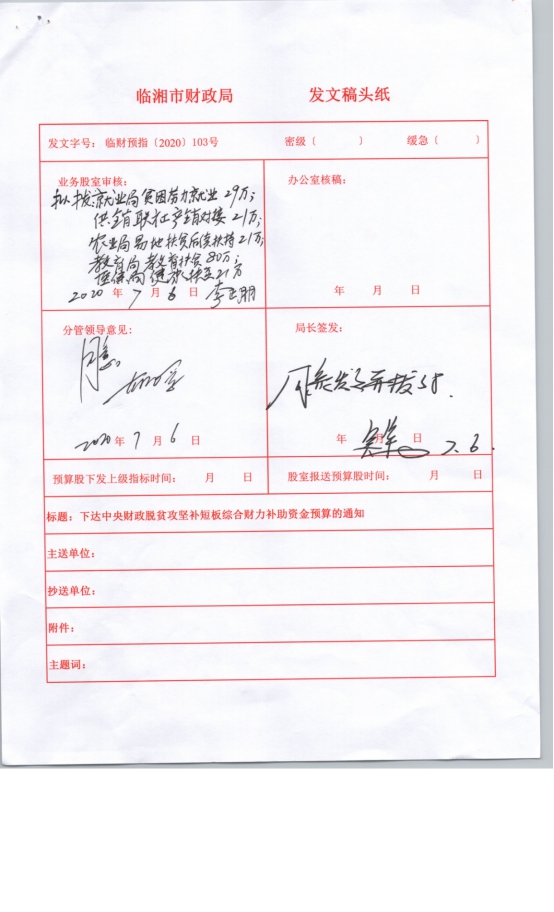 临湘市财政局 发文稿头纸
发文字号：临财预指〔2020〕103号 密级〔 〕 缓急〔 〕
业务股室审核：
拟拨就业局贫困劳力就业29万；
供销联社产销对接21万；
农业局易地扶贫后续扶持21万；
教育局教育扶贫80万；
医保局健康扶贫21万
2020年7月6日
办公室核稿：
年 月 日
分管领导意见：
同意
2020年7月6日
局长签发：
同意发
年 月 日 7.6.
预算股下发上级指标时间： 月 日
股室报送预算股时间： 月 日
标题：下达中央财政脱贫攻坚补短板综合财力补助资金预算的通知
主送单位：
抄送单位：
附件：
主题词：